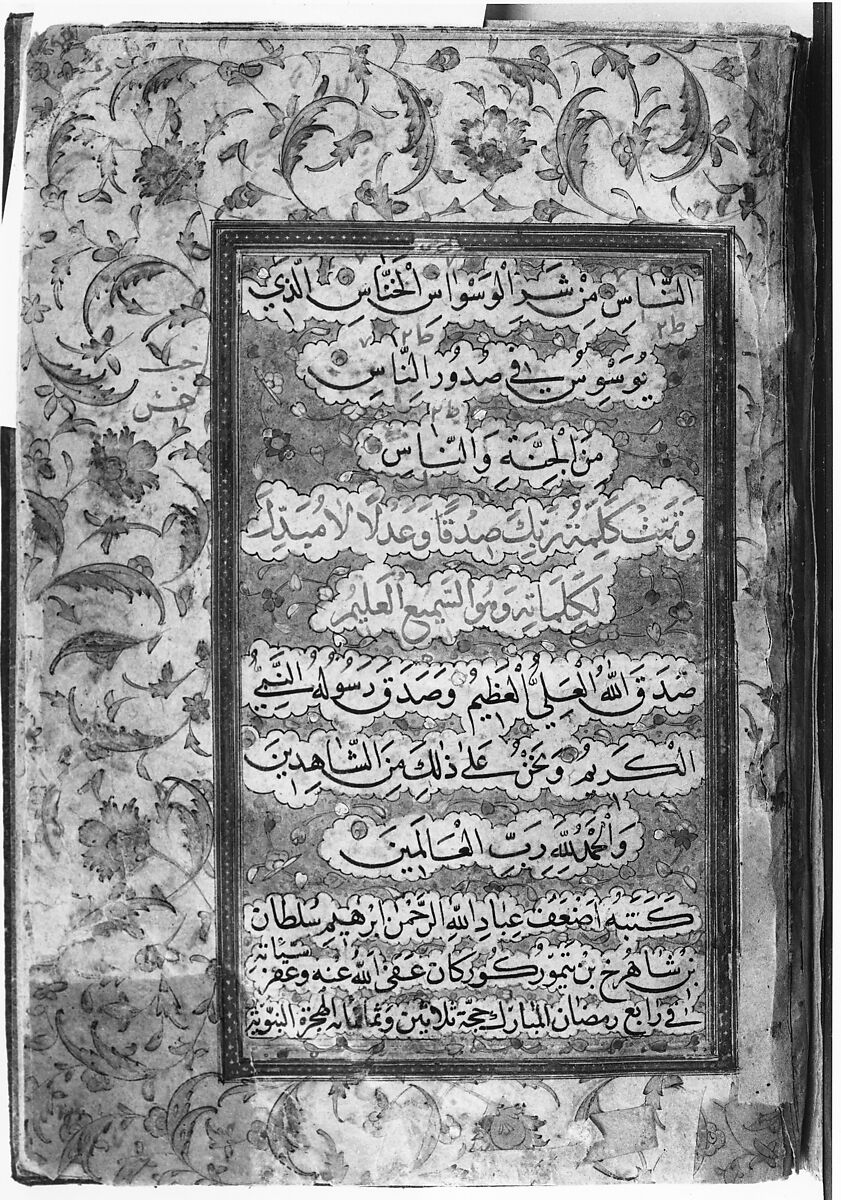 النَّاسِ مِنْ شَرِّ الْوَسْوَاسِ الْخَنَّاسِ الَّذِي
يُوَسْوِسُ فِي صُدُورِ النَّاسِ
مِنَ الْجِنَّةِ وَالنَّاسِ
وَتَمَّتْ كَلِمَةُ رَبِّكَ صِدْقًا وَعَدْلًا لَا مُبَدِّلَ
لِكَلِمَاتِهِ وَهُوَ السَّمِيعُ الْعَلِيمُ
صَدَقَ اللَّهُ الْعَلِيُّ الْعَظِيمُ وَصَدَقَ رَسُولُهُ النَّبِيُّ
الْكَرِيمُ وَنَحْنُ عَلَى ذَلِكَ مِنَ الشَّاهِدِينَ
وَالْحَمْدُ لِلَّهِ رَبِّ الْعَالَمِينَ
كَتَبَهُ أَضْعَفُ عِبَادِ اللَّهِ الرَّحْمَنِ ابْرَهِيمُ سُلْطَان
بْنُ شَاهرُخ بْن تَيْمُور كُورَكَان عَفَى اللَّهُ عَنْهُ وَغَفَرَ سَيِّآتِهِ
فِي رَابِعِ رَمَضَانَ الْمُبَارَكِ حِجَّة ثَلَاثِينَ وَثَمَانمِائَه الْهِجْرَةِ النَّبَوِيَّة